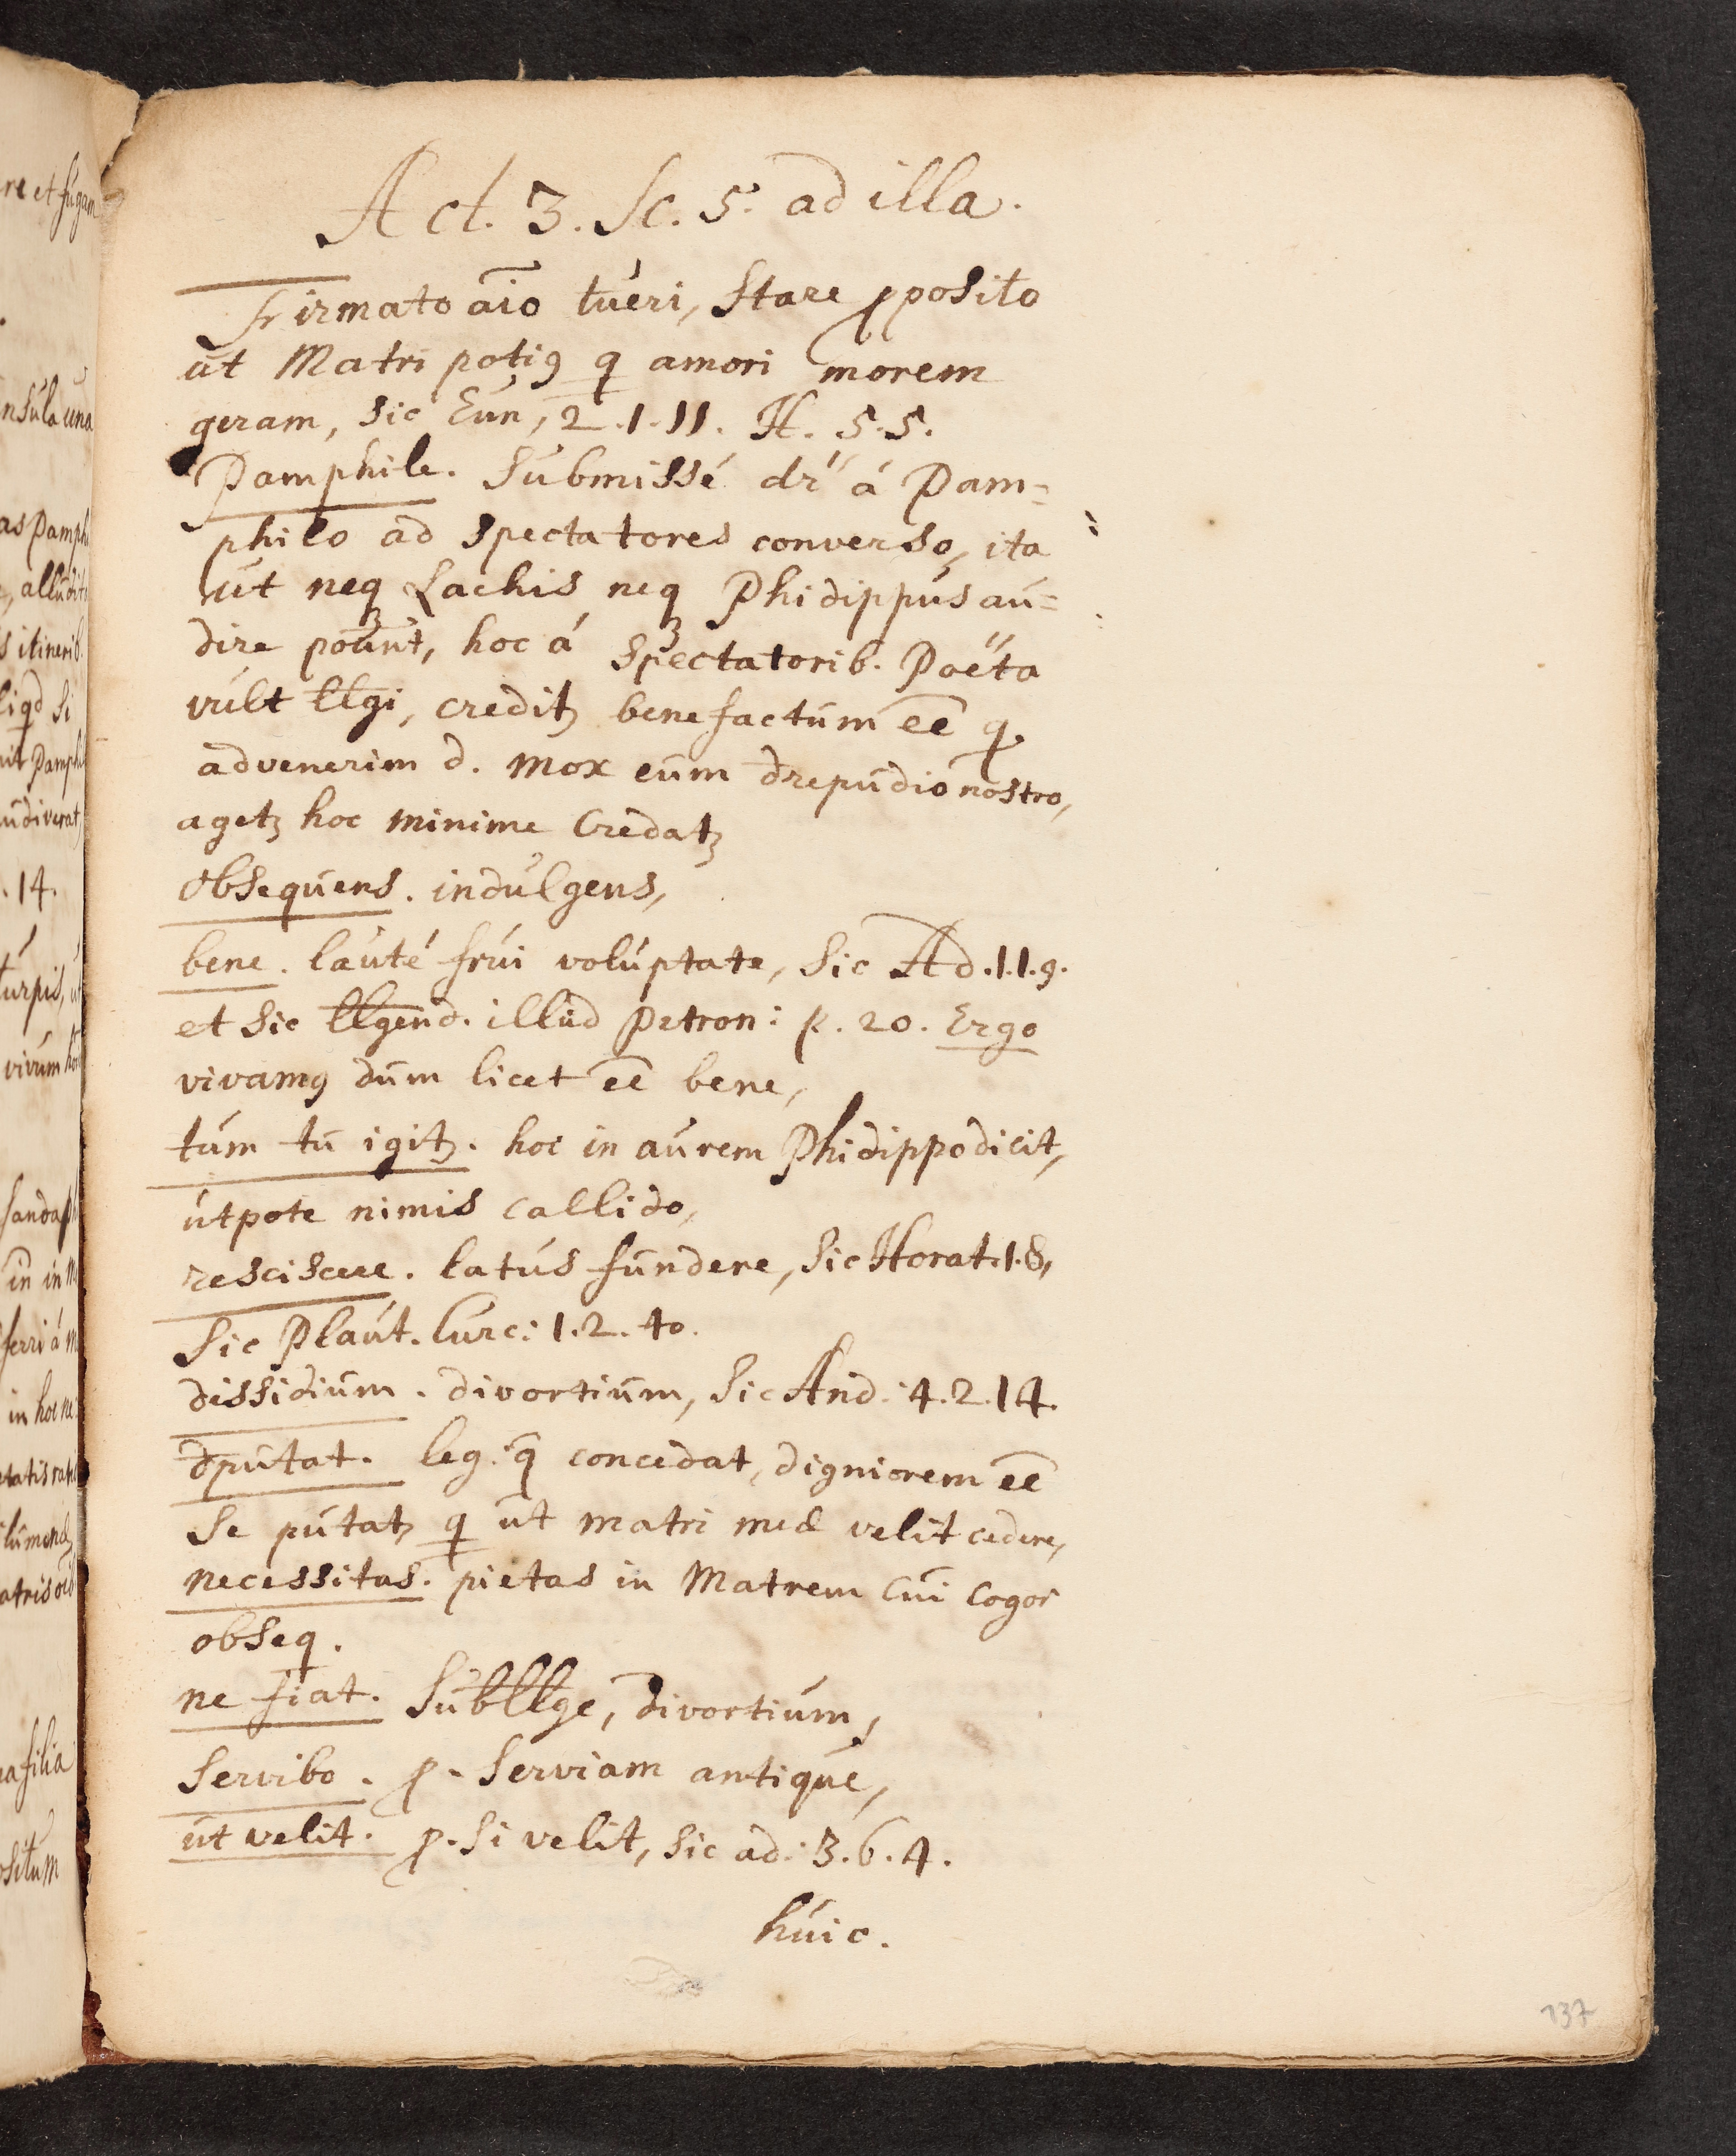 Act. 3. Sc. 5. ad illa.
Firmato aio tueri, stare pposito
ut Matri potig q amori morem
geram, sic Eun, 2.1.11. H. 5.5.
Pamphile. Submissé dr á Pam=
philo ad spectatores converso, ita
ut neq Lachis neq Phidippus au=
dire pount, hoc á spectatorib. Poëta
vult llgi, creditz benefactum ēē q.
advenerim d. mox eum drepudio nostro,
agetz hoc minime credatz
obsequens. indulgens,
bene. lauté frui voluptate, Sic Ad. 1.1.9.
et sic llgend. illud Petron: p. 20. Ergo
vivamg dum licet ēē bene,
tum tu igitz. hoc in aurem Phidippo dicit,
utpote nimis callido,
resciscere. latus fundere, Sic Horat. 1.8,
Sic Plaut. Curc: 1.2.40.
dissidium. divortium, Sic And: 4.2.14.
dputat. leg: q concedat, digniorem ēē
se putatz q ut matri meæ velit cedere,
necessitas. pietas in Matrem cui cogor
obseq.
ne fiat. Subllge, divortium,
Servibo. p. Serviam antique,
ut velit. p. Si velit, sic ad: 3.6.4.
huic.
137